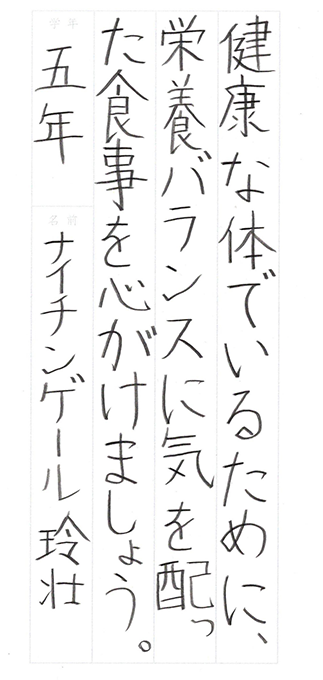 健康な体でいるために、
栄養バランスに気を配っ
た食事を心がけましょう。
学年
五年
名前
ナイチンゲール 玲壮